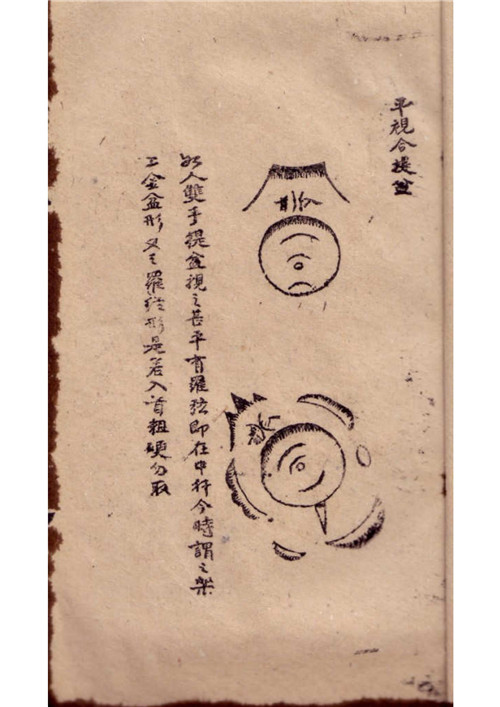 平視合提盆
如人雙手提盆視之甚平有羅弦即在中扦今時謂之架
工金盆形又之羅弦形是若入首粗硬勿取